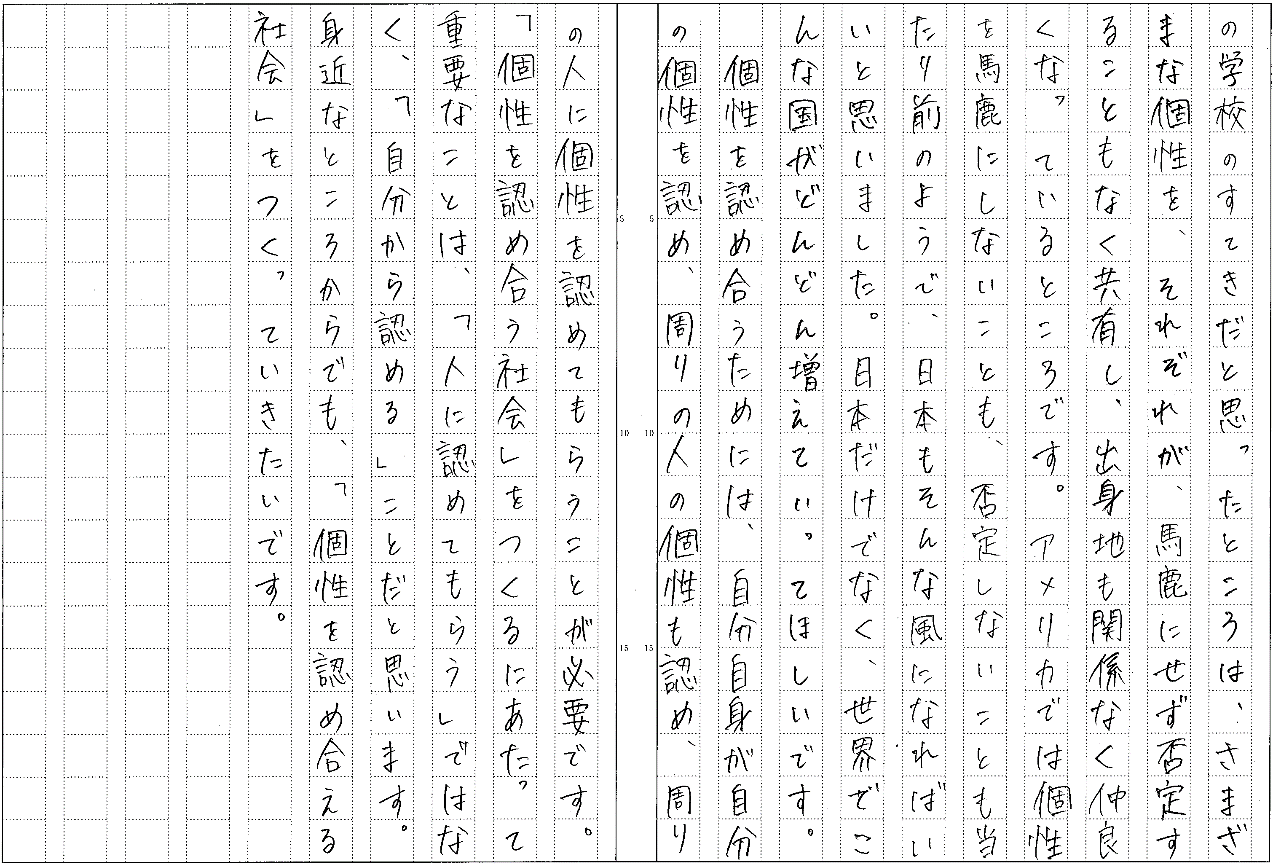 の学校のすてきだと思ったところは、さまざ
まな個性を、それぞれが、馬鹿にせず否定す
ることもなく共有し、出身地も関係なく仲良
くなっているところです。アメリカでは個性
を馬鹿にしないことも、否定しないことも当
たり前のようで、日本もそんな風になればい
いと思いました。日本だけでなく、世界でこ
んな国がどんどん増えていってほしいです。
個性を認め合うためには、自分自身が自分
の個性を認め、周りの人の個性も認め、周り
の人に個性を認めてもらうことが必要です。
「個性を認め合う社会」をつくるにあたって
重要なことは、「人に認めてもらう」ではな
く、「自分から認める」ことだと思います。
身近なところからでも、「個性を認め合える
社会」をつくっていきたいです。
5
10
15
5
10
15